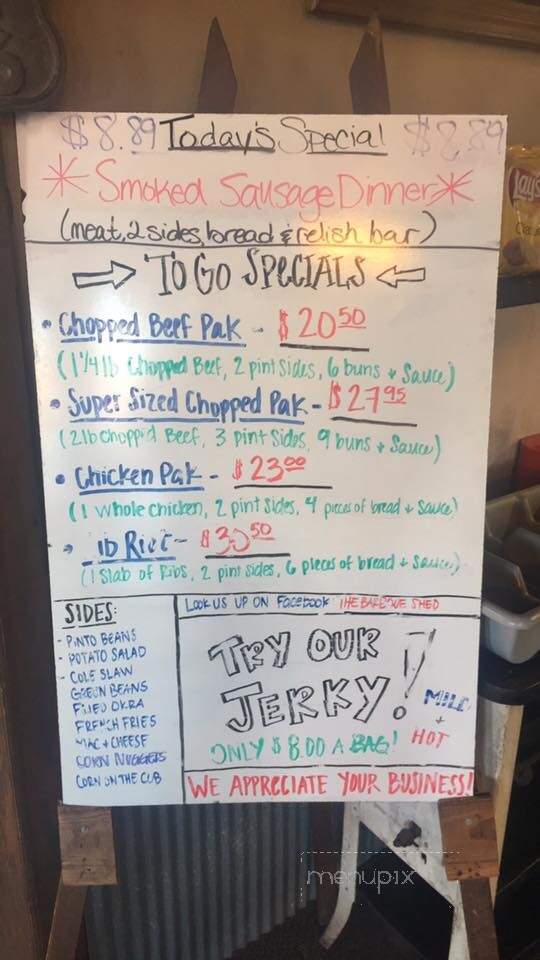 $8.89 Today's Special $8.89
* Smoked Sausage Dinner *
(meat, 2 sides, bread & relish bar)
→ TO GO SPECIALS ←
• Chopped Beef Pak - $20.50
(1 1/4 lb Chopped Beef, 2 pint sides, 6 buns + Sauce)
• Super Sized Chopped Pak - $27.95
(2lb Chopp'd Beef, 3 pint Sides, 9 buns + Sauce)
• Chicken Pak - $23.00
(1 whole chicken, 2 pint sides, 4 pieces of bread + Sauce)
• - $30.50
(1 Slab of Ribs, 2 pint sides, 6 pieces of bread + Sauce)
SIDES:
- PINTO BEANS
- POTATO SALAD
- COLE SLAW
GREEN BEANS
FRIED OKRA
FRENCH FRIES
MAC + CHEESE
CORN NUGGETS
CORN ON THE COB
LOOK US UP ON FACEBOOK THE BARBQUE SHED
TRY OUR
JERKY!
MILD
+
HOT
ONLY $8.00 A BAG!
WE APPRECIATE YOUR BUSINESS!
Lay's
menupix